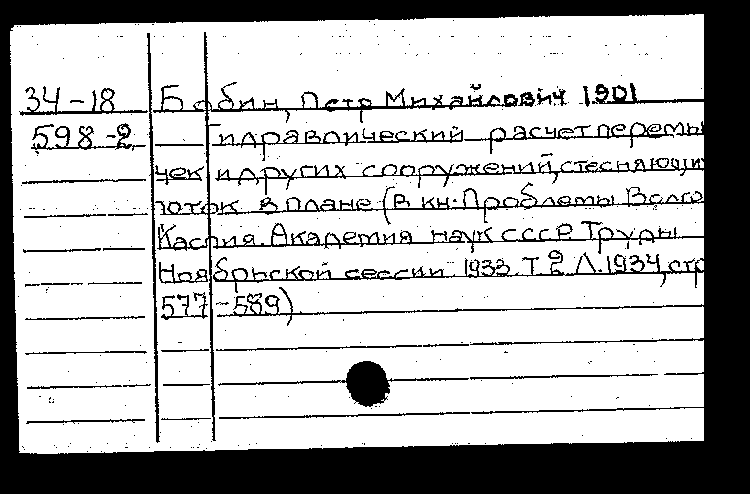 34-18 Бабин, Петр Михайлович 1901
598-2 Гидравлический расчет перемы
чек и других сооружений, стесняющи
поток в плане (В кн. Проблемы Волго
Каспия. Академия наук СССР. Труды
Ноябрьской сессии 1933. Т 2 Л. 1934, стр
577-589)